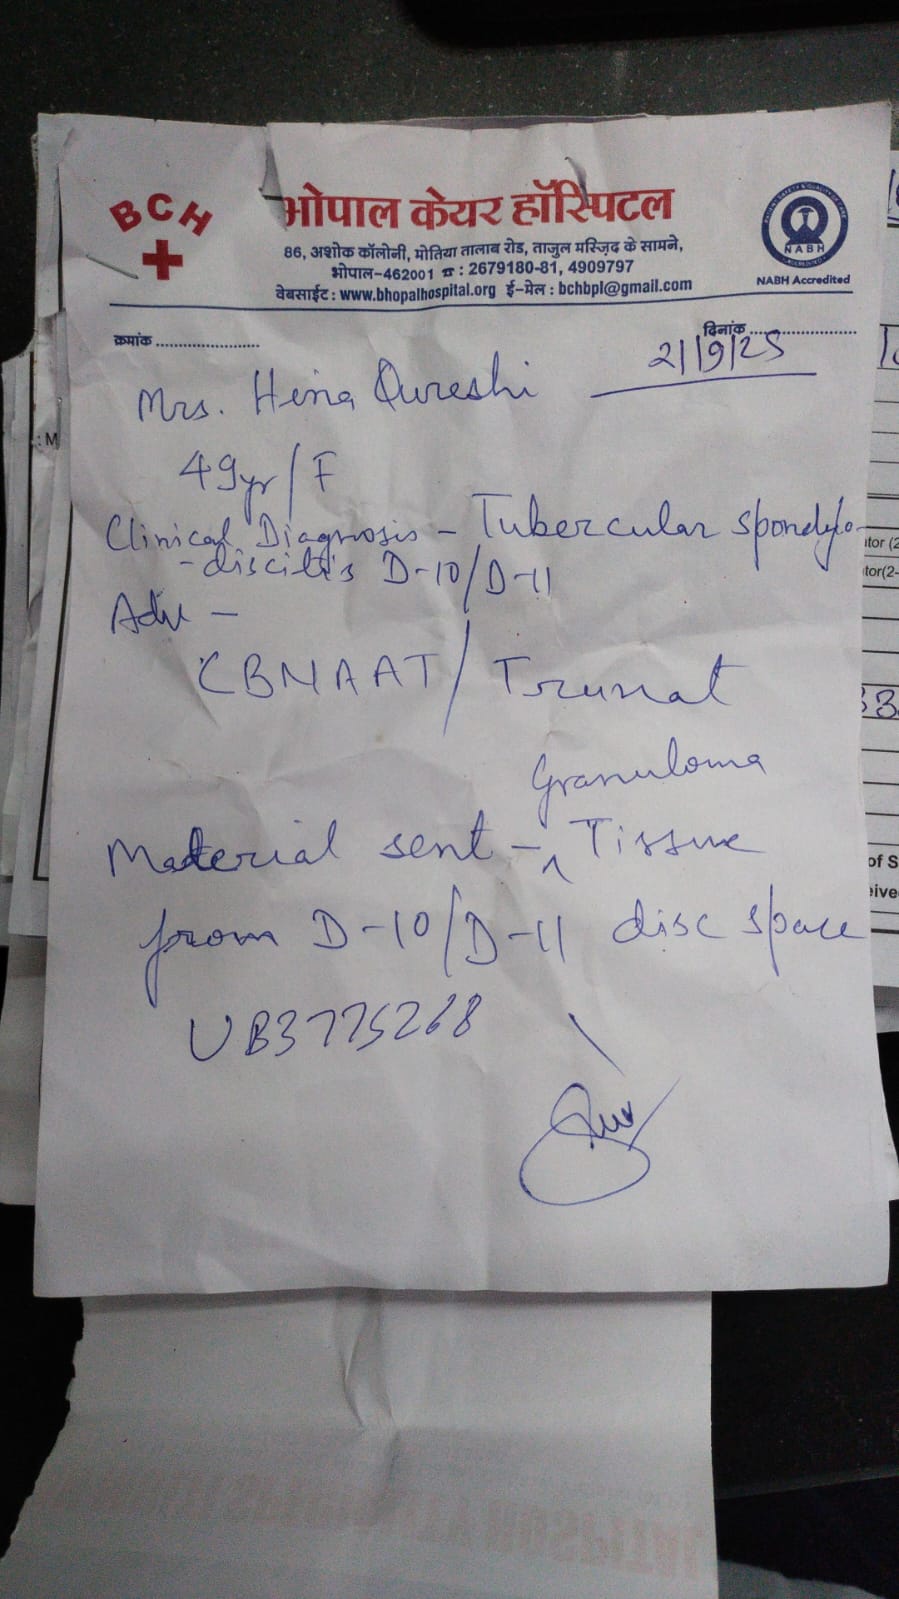 BCH
भोपाल केयर हॉस्पिटल
86, अशोक कॉलोनी, मोतिया तालाब रोड, ताजुल मस्जिद के सामने,
भोपाल-462001 ☎ : 2679180-81, 4909797
वेबसाईट : www.bhopalhospital.org ई-मेल : bchbpl@gmail.com
NABH
NABH Accredited
क्रमांक ........................
दिनांक ........................
2/9/25
Mrs. Hena Qureshi
49yr/F
Clinical Diagnosis - Tubercular spondylo-
-discitis D-10/D-11
Adv -
CBNAAT/Trunat
Granuloma
Material sent - ^ Tissue
from D-10/D-11 disc space
UB3775268